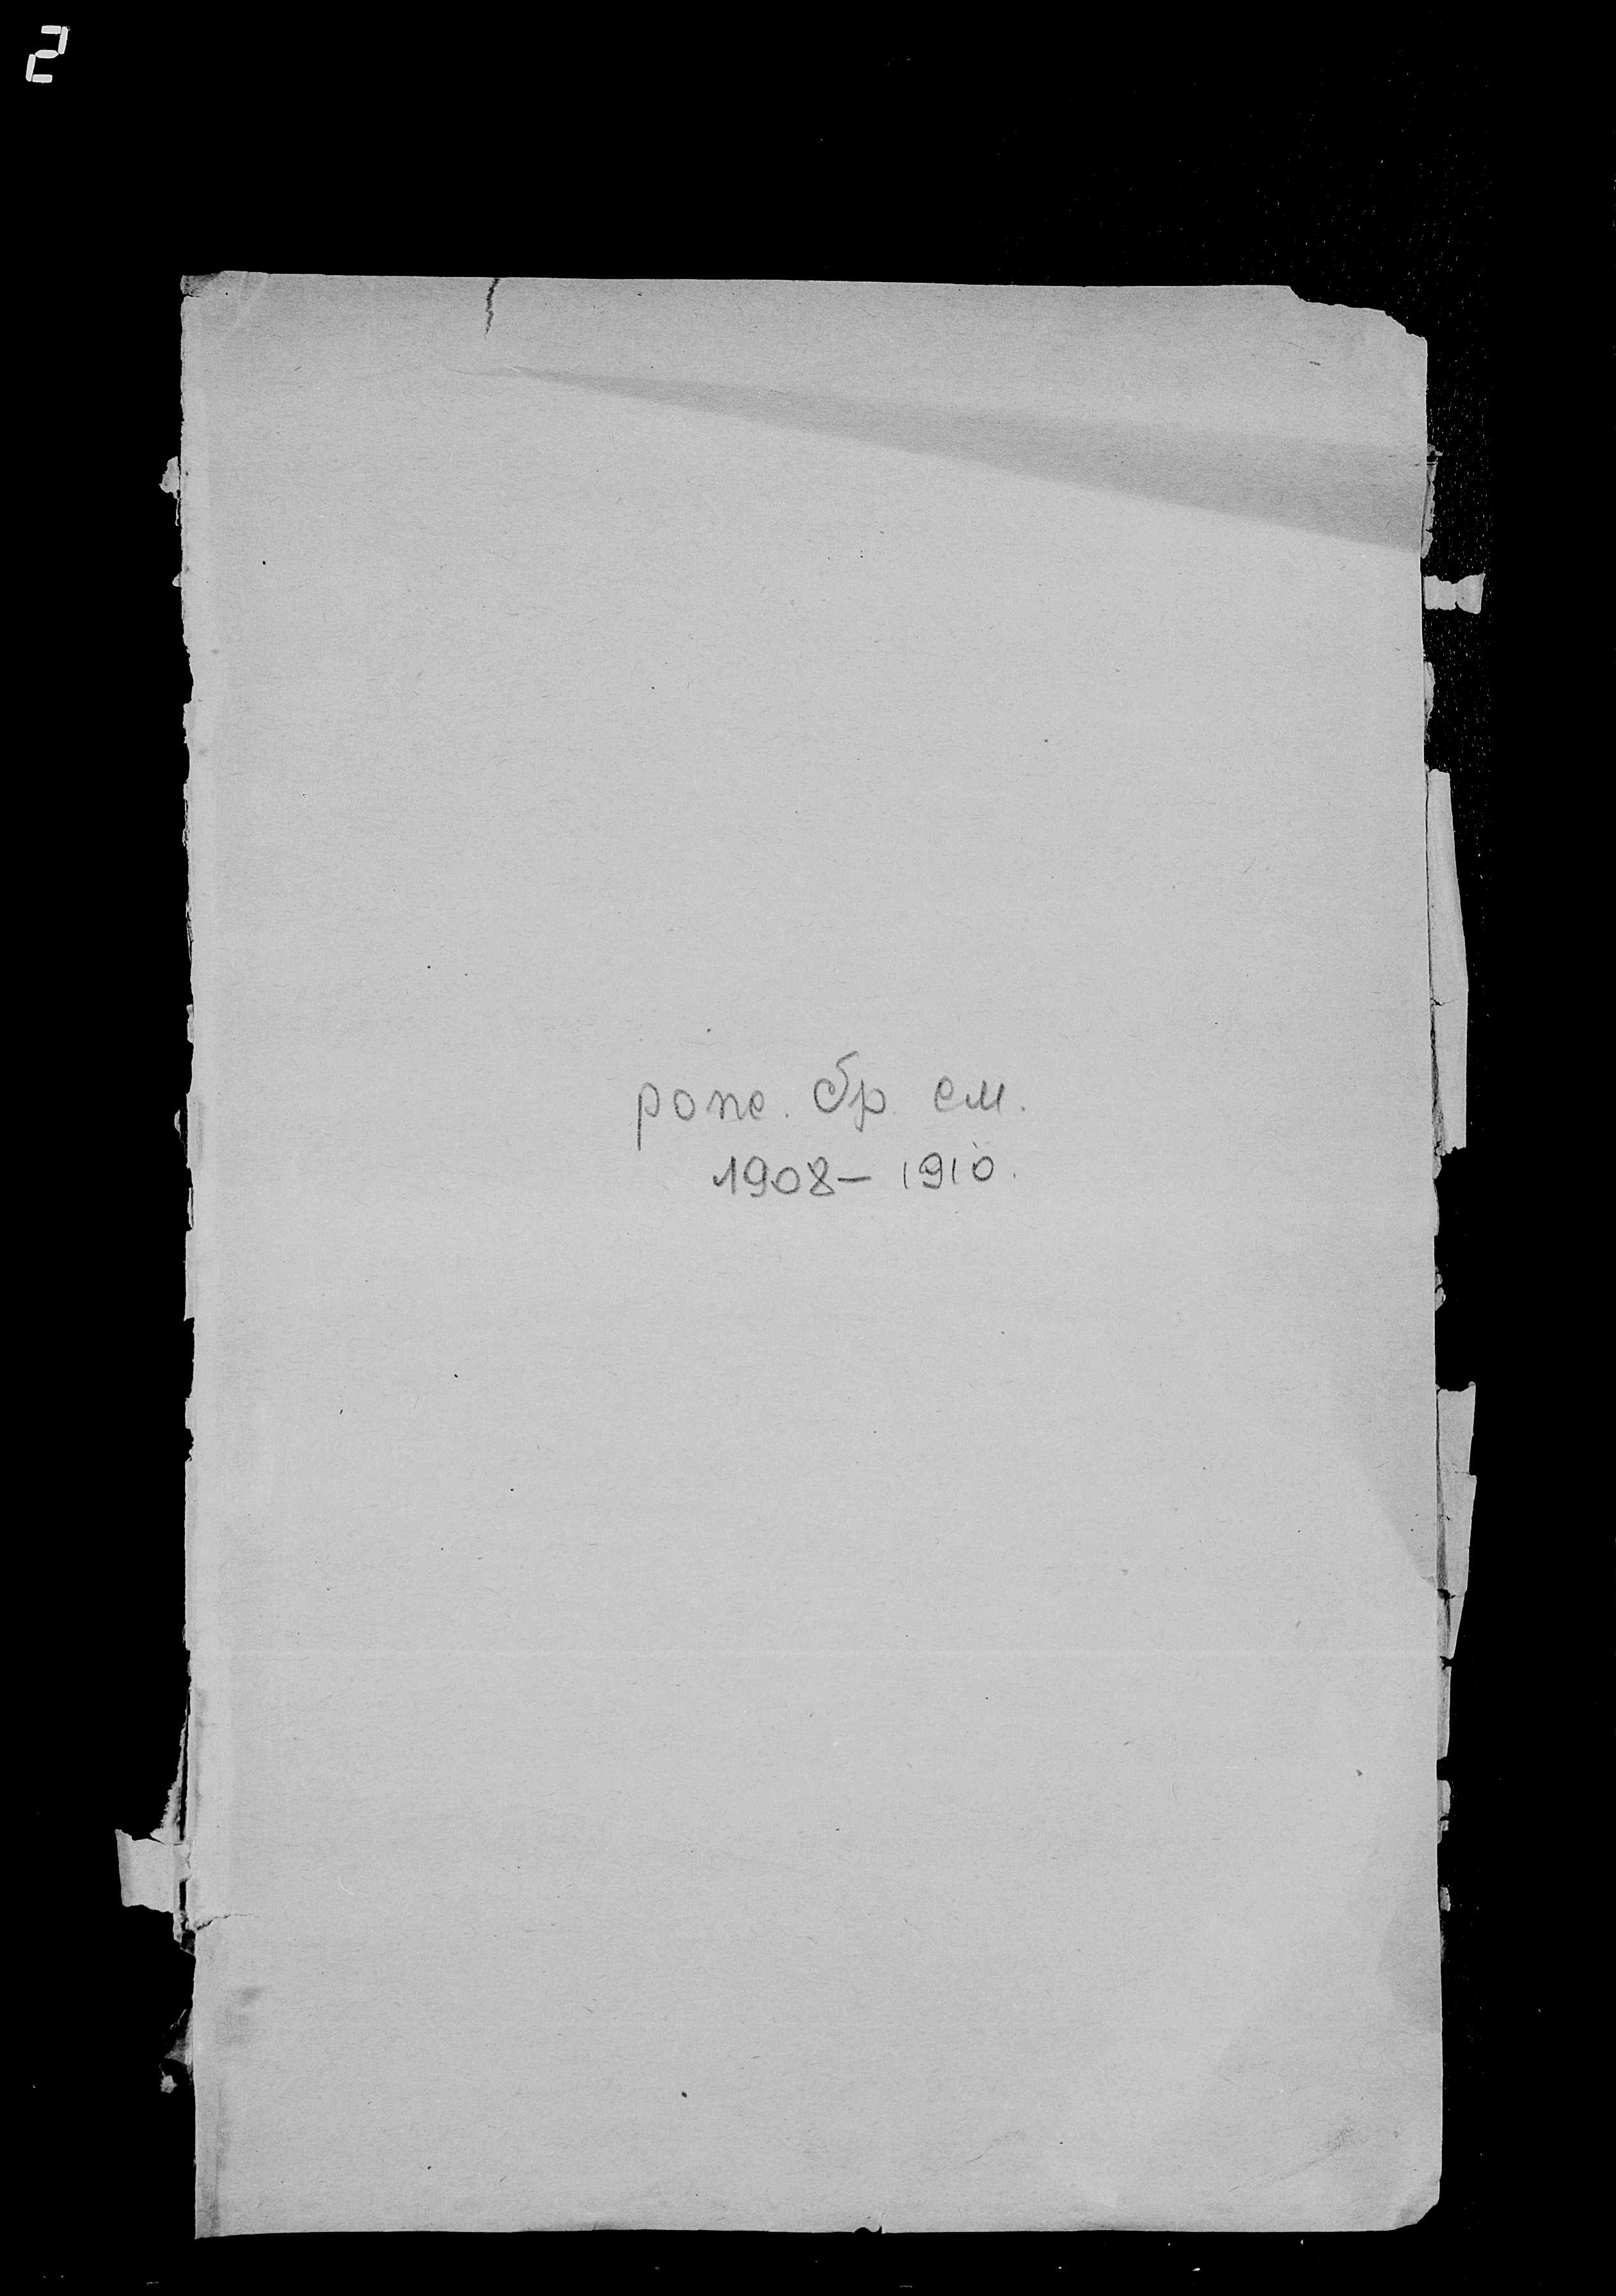 2
рож. бр. см.
1908 – 1910.